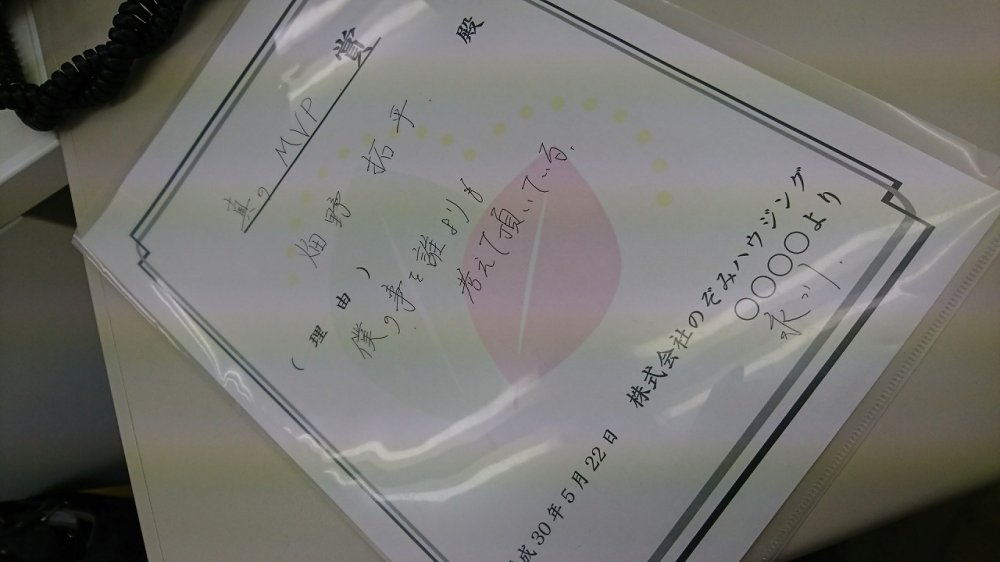 真の MVP 賞
畑野 拓平 殿
(理由)
僕の事を誰よりも
考えて頂いている。
成30年5月22日
株式会社のぞみハウジング
〇〇〇〇より